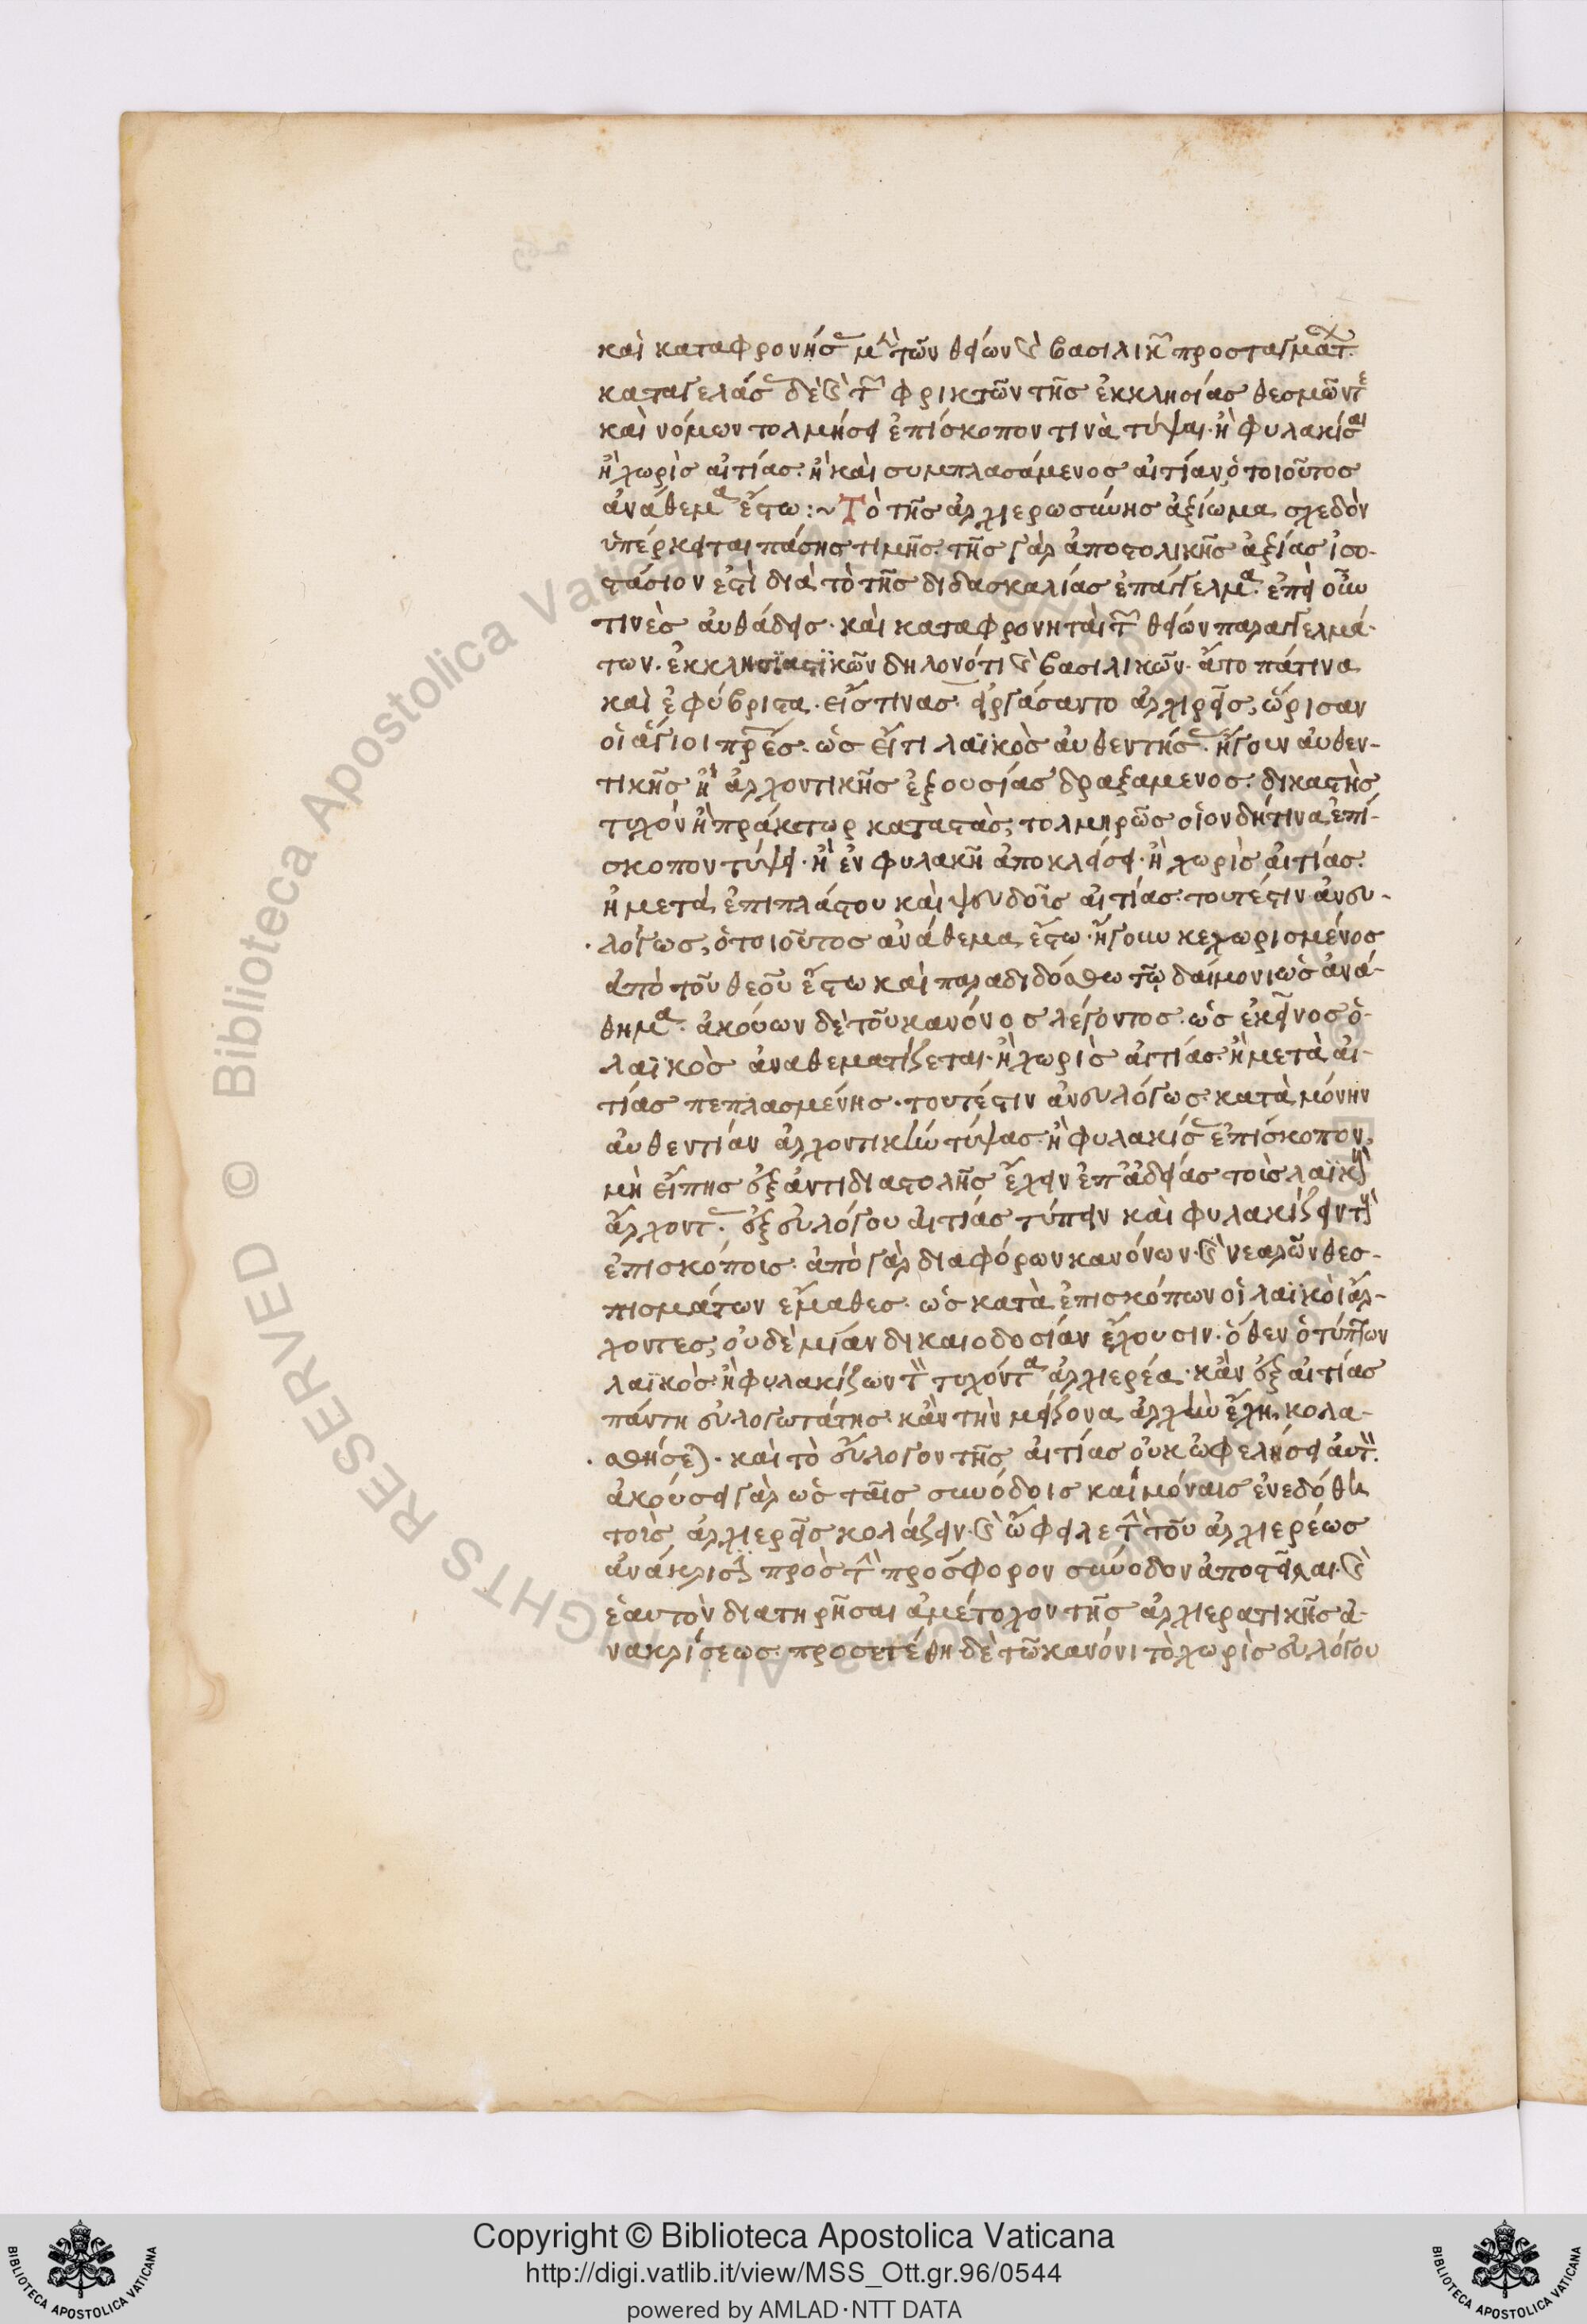 καὶ καταφρονήσ μὲν τῶν θείων καὶ βασιλικῶν προσταγμάτ.
καταγελάσ δὲ καὶ τῶν φρικτῶν τῆς ἐκκλησίας θεσμῶν τε
καὶ νόμων τολμήσει ἐπίσκοπον τινὰ τύψαι· ἢ φυλακίσαι
ἢ χωρὶς αἰτίας· ἢ καὶ συμπλασάμενος αἰτίαν, ὁ τοιοῦτος
ἀνάθεμα ἔστω :~ Τὸ τῆς ἀρχιερωσύνης ἀξίωμα σχεδὸν
ὑπέρκειται πάσης τιμῆς· τῆς γὰρ ἀποστολικῆς ἀξίας ἰσο-
στάσιον ἐστὶ διὰ τὸ τῆς διδασκαλίας ἐπάγγελμα· ἐπεὶ οὖν
τινὲς αὐθάδεις· καὶ καταφρονηταὶ τῶν θείων παραγγελμά-
των· ἐκκλησϊαστϊκῶν δηλονότι καὶ βασιλικῶν· ἄτοπά τινα
καὶ ἐφύβριστα· εἴς τινας εἰργάσαντο ἀρχιερεῖς, ὥρισαν
οἱ ἅγιοι πρες· ὡς εἴ τι λαϊκὸς αὐθεντήσ· ἤγουν αὐθεν-
τικῆς ἢ ἀρχοντικῆς ἐξουσίας δραξάμενος· δικαστὴς
τυχὸν ἢ πράκτωρ καταστὰς, τολμηρῶς οἱονδήτινα ἐπί-
σκοπον τύψει· ἢ ἐν φυλακῇ ἀποκλείσει· ἢ χωρὶς αἰτίας·
ἢ μετὰ ἐπιπλάστου καὶ ψευδοῖς αἰτίας· τουτέστιν ἀνευ-
λόγως, ὁ τοιοῦτος ἀνάθεμα ἔστω· ἤγουν κεχωρισμένος
ἀπὸ τοῦ θεοῦ ἔστω καὶ παραδιδόσθω τῷ δαίμονι ὡς ἀνά-
θημα· ἀκούων δὲ τοῦ κανόνος λέγοντος· ὡς ἐκεῖνος ὁ
λαϊκὸς ἀναθεματίζεται· ἢ χωρὶς αἰτίας· ἢ μετὰ αἰ-
τίας πεπλασμένης· τουτέστιν ἀνευλόγως κατὰ μόνην
αὐθεντίαν ἀρχοντικὴν τύψας· ἢ φυλακίσ ἐπίσκοπον,
μὴ εἴπης ἐξ ἀντιδιαστολῆς ἔχειν ἐπ' ἀδείας τοὶς λαϊκοὺς
ἄρχοντ· ἐξ εὐλόγου αἰτίας τύπειν καὶ φυλακίζειν τοὺς
ἐπισκόποις· ἀπὸ γὰρ διαφόρων κανόνων καὶ νεαρῶν θεσ-
πισμάτων ἔμαθες· ὡς κατὰ ἐπισκόπων οἱ λαϊκοὶ ἄρ-
χοντες, οὐδὲ μίαν δικαιοδοσίαν ἔχουσιν· ὅθεν ὁ τύπτων
λαϊκὸς ἢ φυλακίζων τὸν τυχόντα ἀρχιερέα· κἂν ἐξ αἰτίας
πάντη εὐλογωτάτης· κἂν τὴν μείζονα ἀρχὴν ἔχη, κολα-
σθήσεται· καὶ τὸ εὔλογον τῆς αἰτίας οὐκ ὠφελήσει αὐτόν.
ἀκούσει γὰρ ὡς ταῖς συνόδοις καὶ μόναις ἐνεδόθη
τοὶς ἀρχιερεῖς κολάζειν· καὶ ὤφειλε τὴν τοῦ ἀρχιερέως
ἀνάκρισιν πρὸς τὴν πρόσφορον σύνοδον ἀποστεῖλαι· καὶ
ἑαυτὸν διατηρῆσαι ἀμέτοχον τῆς ἀρχιερατικῆς ἀ-
νακρίσεως· προσετέθη δὲ τῶ κανόνι τὸ χωρὶς εὐλόγου
Copyright © Biblioteca Apostolica Vaticana
http://digi.vatlib.it/view/MSS_Ott.gr.96/0544
powered by AMLAD·NTT DATA